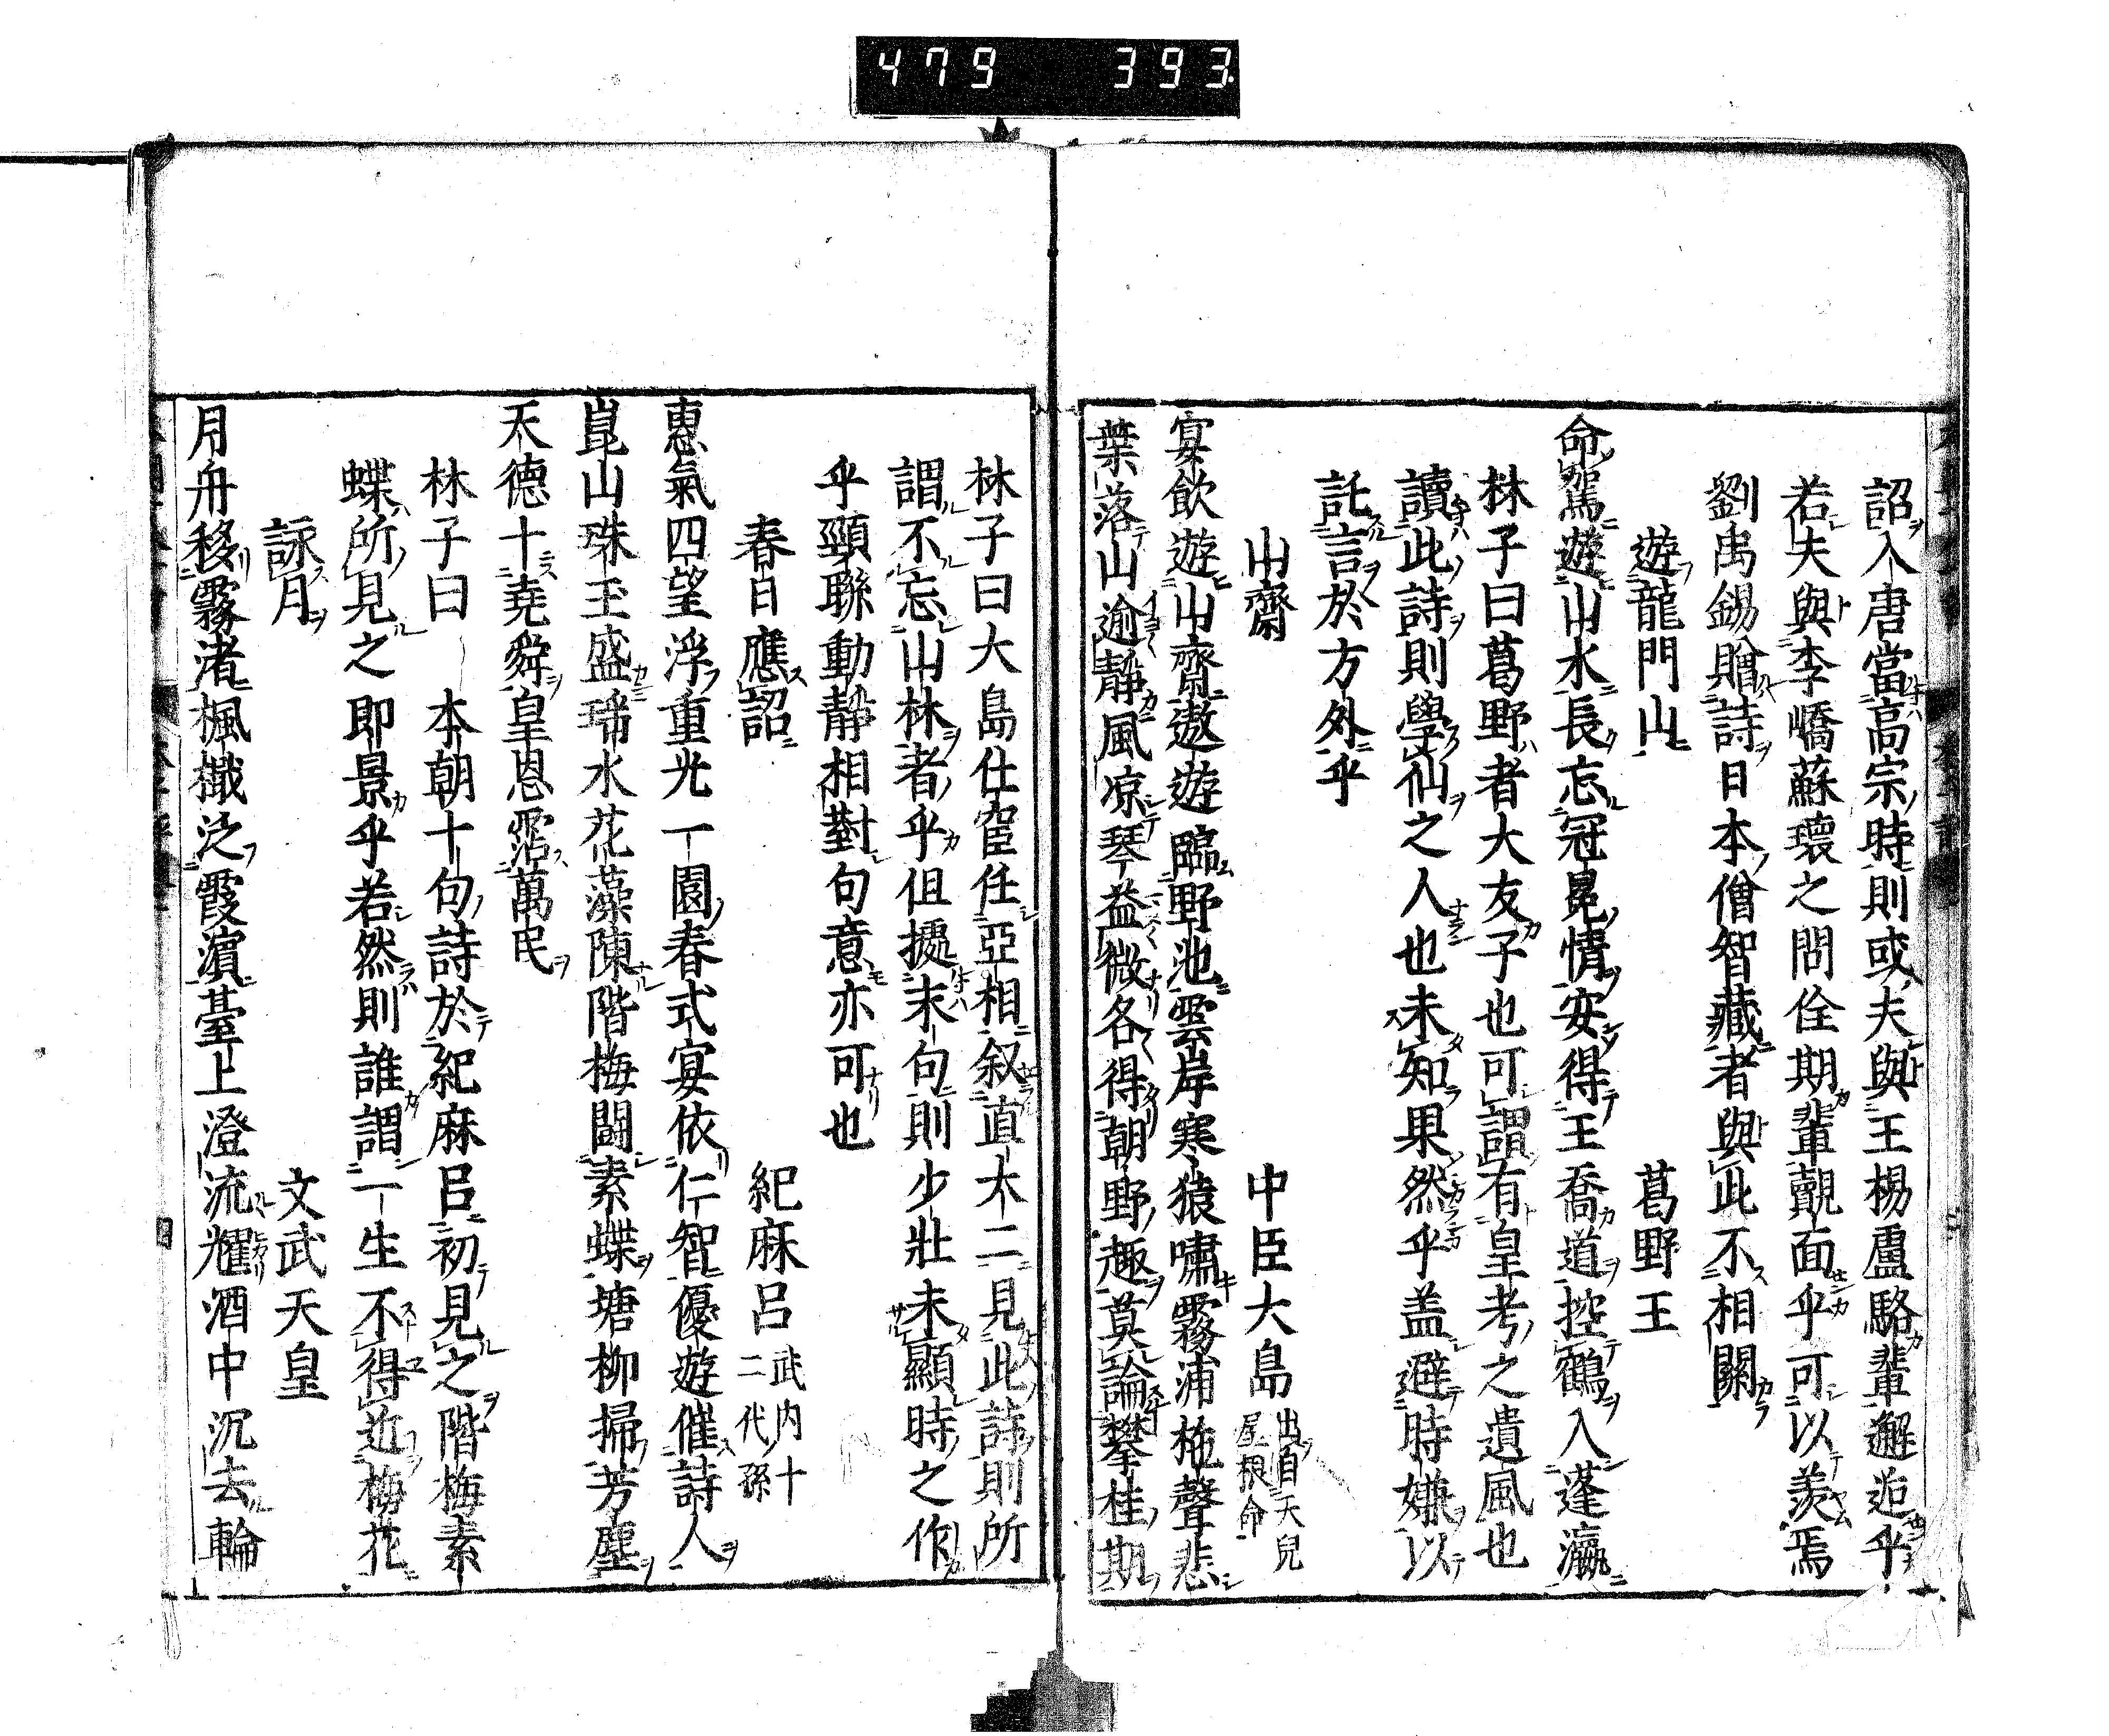 479 393
詔入唐當高宗時則或夫與王楊盧駱輩邂逅乎
若夫與李嶠蘇瓌之問佺期輩覿面乎可以羨焉
劉禹錫贈詩日本僧智藏者與此不相關
遊龍門山 葛野王
命駕遊山水長忘冠冕情安得王喬道控鶴入蓬瀛
林子曰葛野者大友子也可謂有皇考之遺風也
讀此詩則學仙之人也未知果然乎盖避時嫌以
託言於方外乎
山齋 中臣大島 出自天兒屋根命
宴飲遊山齋遨遊臨野池雲岸寒猿嘯霧浦柂聲悲
葉落山逾靜風凉琴益微各得朝野趣莫論攀桂期
林子曰大島仕宦任亞相叙直大二見此詩則所
謂不忘山林者乎但據末句則少壯未顯時之作
乎頸聯動靜相對句意亦可也
春日應詔 紀麻呂 武内十二代孫
惠氣四望浮重光一園春式宴依仁智優遊催詩人
崑山珠玉盛瑶水花藻陳階梅鬪素蝶塘柳掃芳塵
天德十堯舜皇恩霑萬民
林子曰 本朝十句詩於紀麻呂初見之階梅素
蝶所見之即景乎若然則誰謂一生不得近梅花
詠月 文武天皇
月舟移霧渚楓檝泛霞濵臺上澄流耀酒中沉去輪